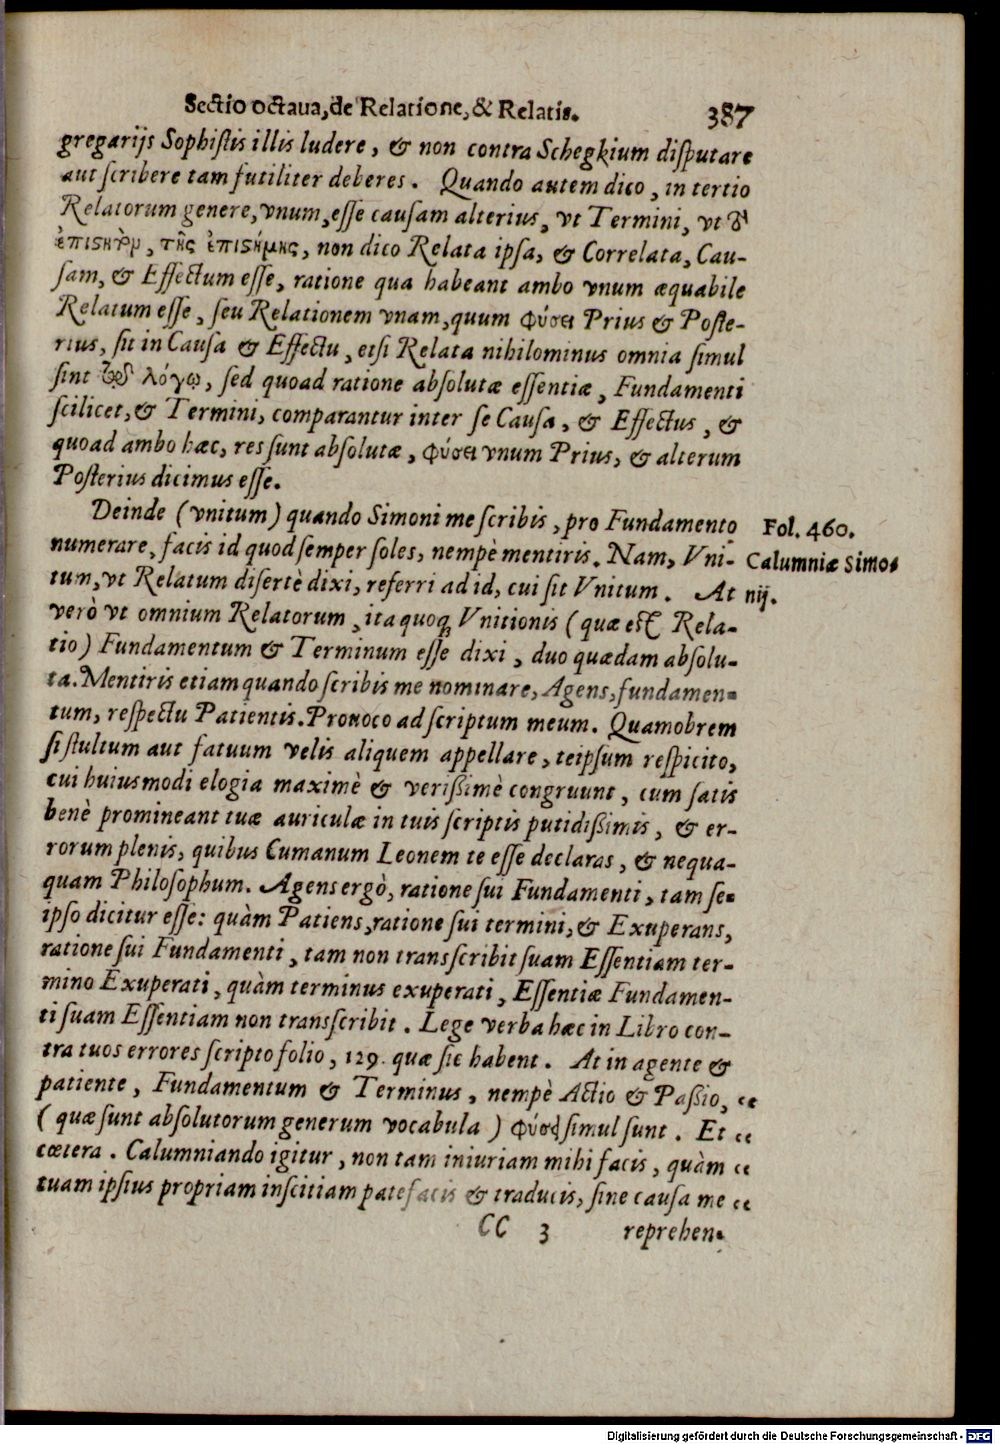 Sectio octaua, de Relatione, & Relatis. 387
gregarijs Sophistis illis ludere, & non contra Schegkium disputare
aut scribere tam futiliter deberes. Quando autem dico, in tertio
Relatorum genere, vnum, esse causam alterius, vt Termini, vt
τῆς ἐπιστήμης, non dico Relata ipsa, & Correlata, Cau-
sam, & Effectum esse, ratione qua habeant ambo vnum æquabile
Relatum esse, seu Relationem vnam, quum φύσει Prius & Poste-
rius, sit in Causa & Effectu, etsi Relata nihilominus omnia simul
sint λόγῳ, sed quoad ratione absolutæ essentiæ, Fundamenti
scilicet, & Termini, comparantur inter se Causa, & Effectus, &
quoad ambo hæc, res sunt absolutæ, φύσει vnum Prius, & alterum
Posterius dicimus esse.
Deinde (vnitum) quando Simoni me scribis, pro Fundamento
Fol. 460.
numerare, facis id quod semper soles, nempè mentiris. Nam, Vni-
Calumniæ Simo-
tum, vt Relatum disertè dixi, referri ad id, cui sit Vnitum. At
nij.
verò vt omnium Relatorum, ita quoq; Vnitionis (quæ est Rela-
tio) Fundamentum & Terminum esse dixi, duo quædam absolu-
ta. Mentiris etiam quando scribis me nominare, Agens, fundamen-
tum, respectu Patientis. Prouoco ad scriptum meum. Quamobrem
si stultum aut fatuum velis aliquem appellare, teipsum respicito,
cui huiusmodi elogia maximè & verißimè congruunt, cum satis
benè promineant tuæ auriculæ in tuis scriptis putidißimis, & er-
rorum plenis, quibus Cumanum Leonem te esse declaras, & nequa-
quam Philosophum. Agens ergò, ratione sui Fundamenti, tam se-
ipso dicitur esse: quàm Patiens, ratione sui termini, & Exuperans,
ratione sui Fundamenti, tam non transscribit suam Essentiam ter-
mino Exuperati, quàm terminus exuperati, Essentiæ Fundamen-
ti suam Essentiam non transscribit. Lege verba hæc in Libro con-
tra tuos errores scripto folio, 129. quæ sic habent. At in agente &
patiente, Fundamentum & Terminus, nempè Actio & Paßio, “
(quæ sunt absolutorum generum vocabula) φύσει simul sunt. Et “
cœtera. Calumniando igitur, non tam iniuriam mihi facis, quàm “
tuam ipsius propriam inscitiam patefacis & traducis, sine causa me “
CC 3 reprehen-
Digitalisierung gefördert durch die Deutsche Forschungsgemeinschaft - DFG